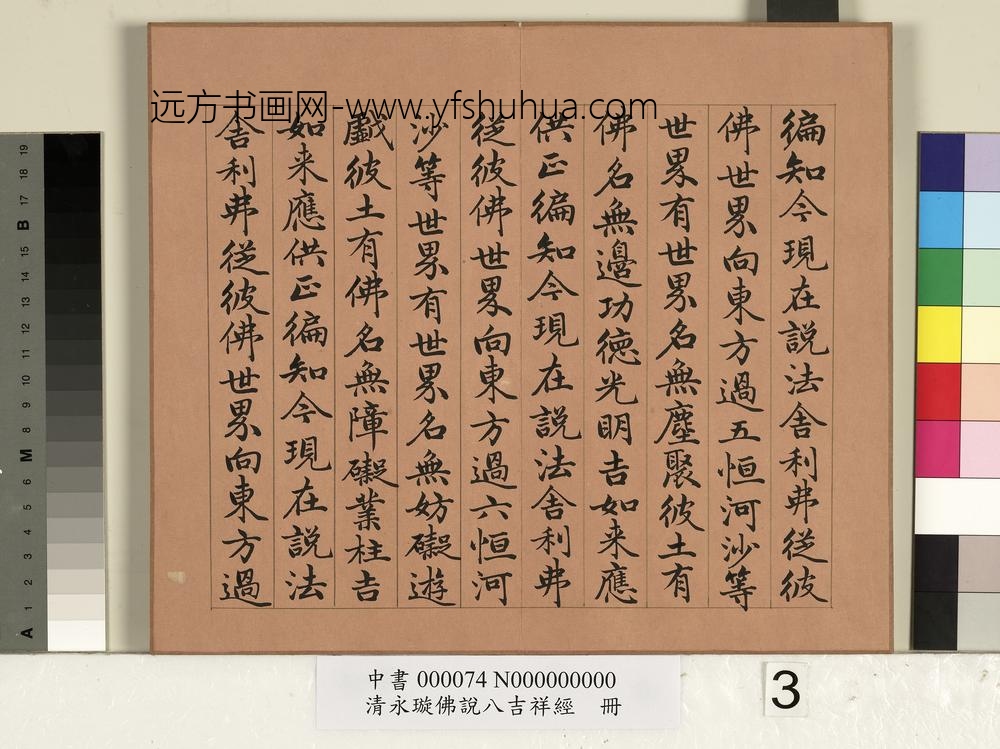 远方书画网-www.yfshuhua.com
徧知今現在説法舍利弗從彼
佛世界向東方過五恒河沙等
世界有世界名無塵聚彼土有
佛名無邊功德光明吉如来應
供正徧知今現在説法舍利弗
從彼佛世界向東方過六恒河
沙等世界有世界名無妨礙遊
戲彼土有佛名無障礙業柱吉
如来應供正徧知今現在説法
舍利弗從彼佛世界向東方過
19
18
17
B
15
14
13
12
11
10
9
8
M
6
5
4
3
2
1
A
中書 000074 N000000000
清永璇佛說八吉祥經　冊
3